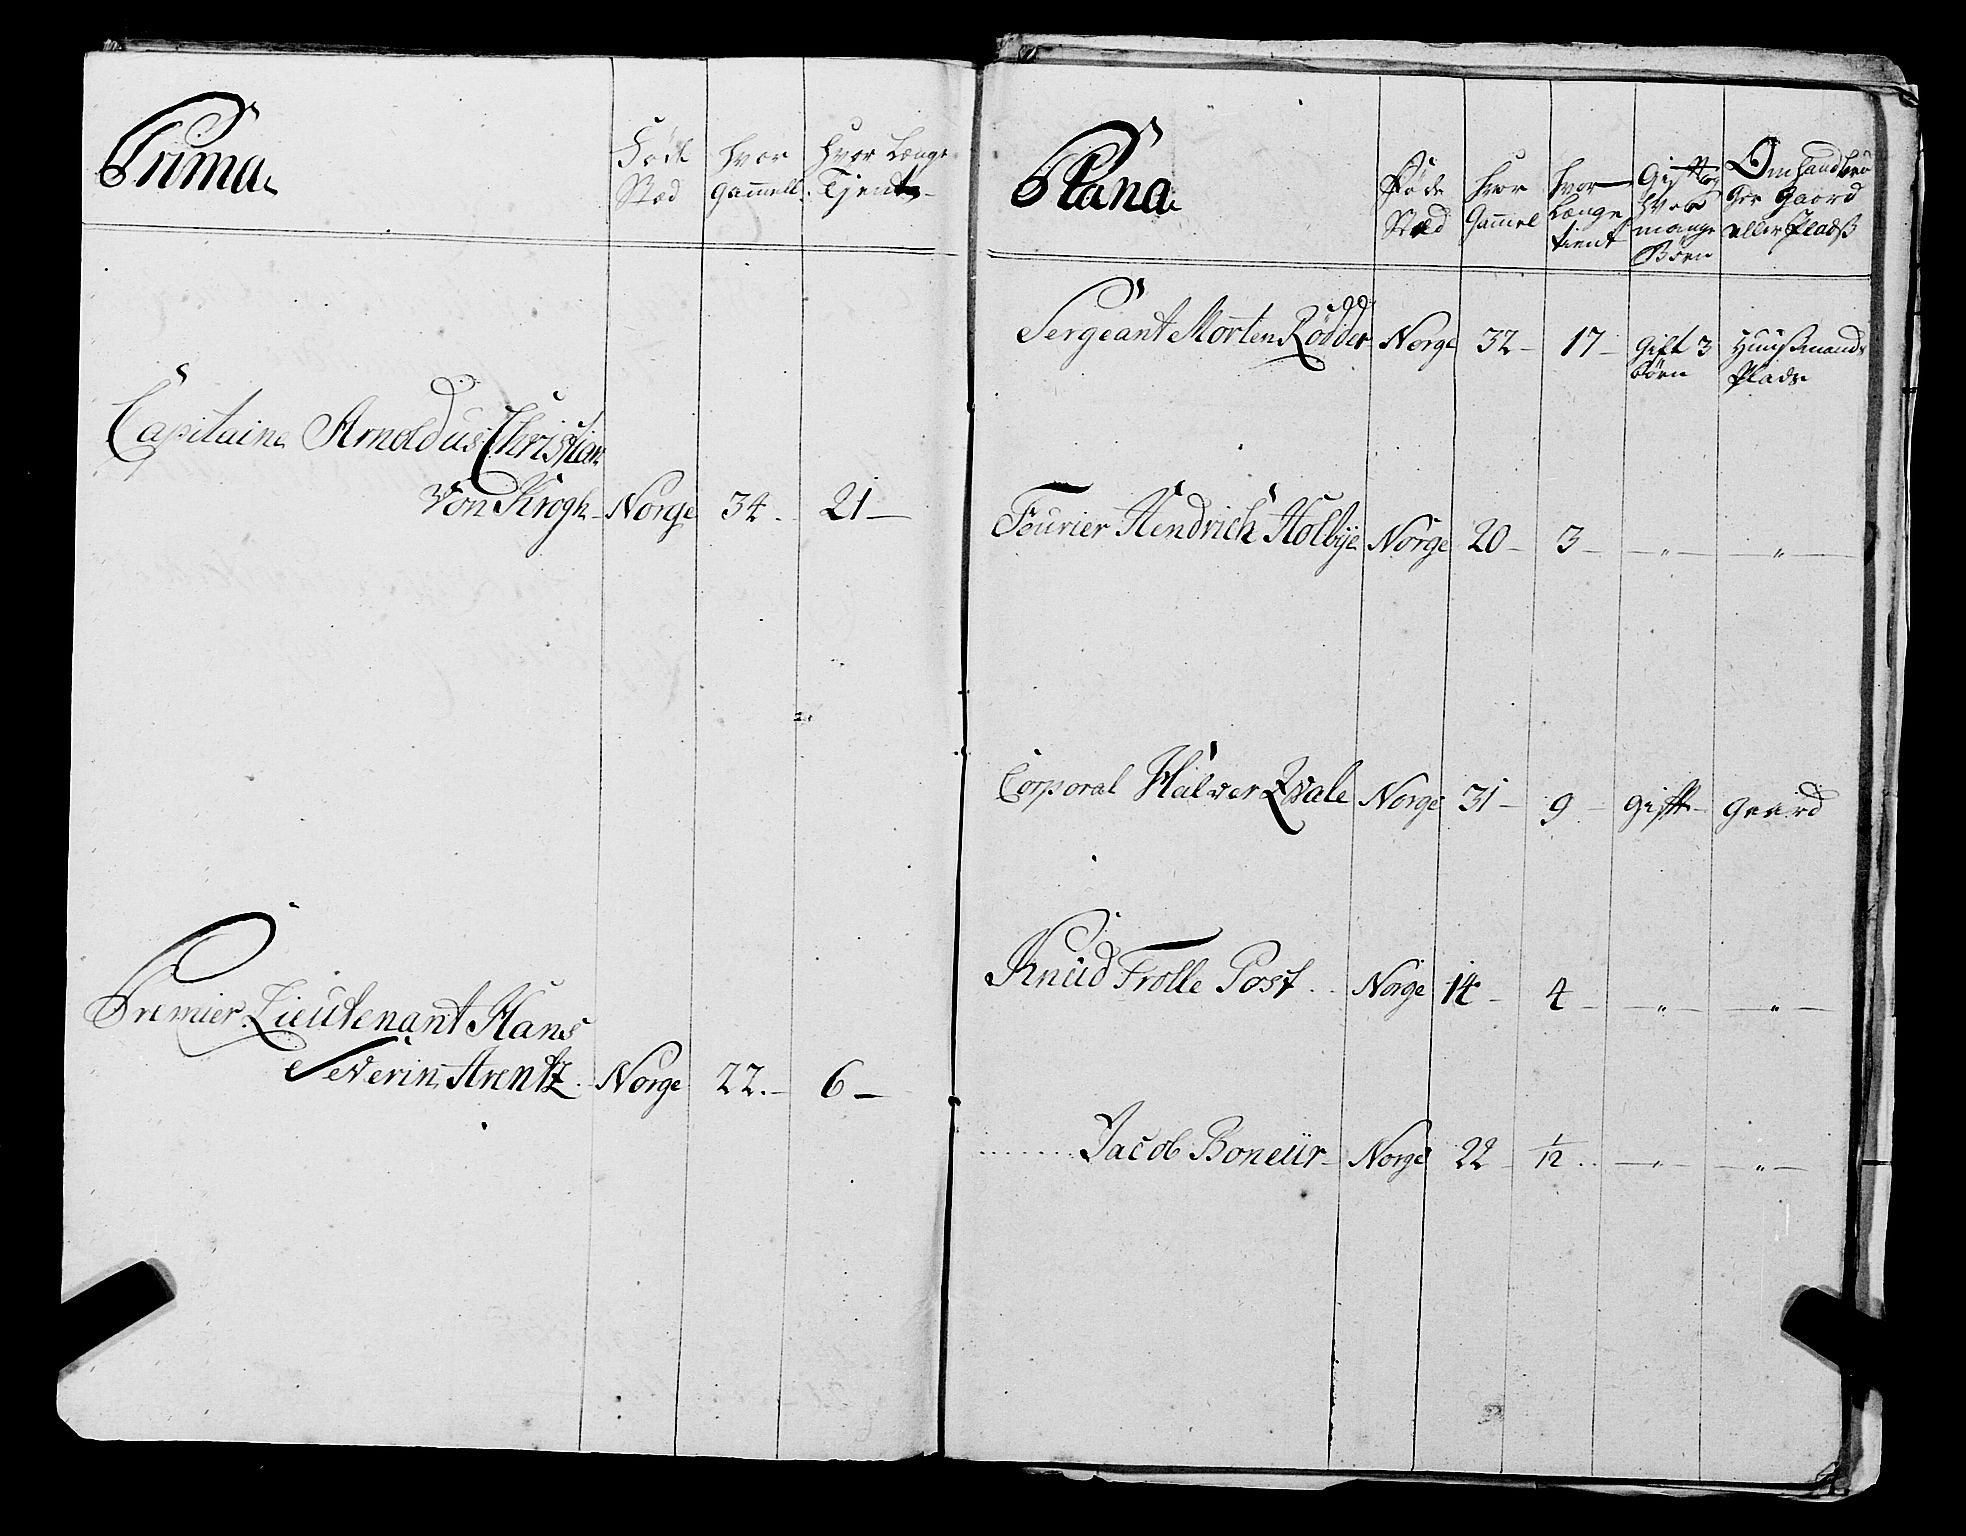 Prima
Føde Stæd
hvor Gammell
Hvor Længe Tjent
Capitaine Arnoldus Christian
von Krogh Norge 34. 21 —
Premier Lieutenant Hans
Severin Arentz. Norge 22. — 6 —
Plana
Føde Stæd
hvor Gammel
hvor Længe tient
Gift og hvor mange Børn
Om hand bruger Gaard eller Pladß
Sergeant Morten Rødder Norge 32 — 17 — Gift 3 Huusmands
Børn Plads
Fourier Hendrich Holbye Norge 20 — 3 — — „ — — „ —
Corporal Halvor Qvale Norge 31 — 9 — Gift — Gaard
Knud Trolle Post . . Norge 14 — 4 — — „ — — „ —
. . . . . . . . Jacob Boneür — Norge 22 — 1/12 . . — „ — — „ —